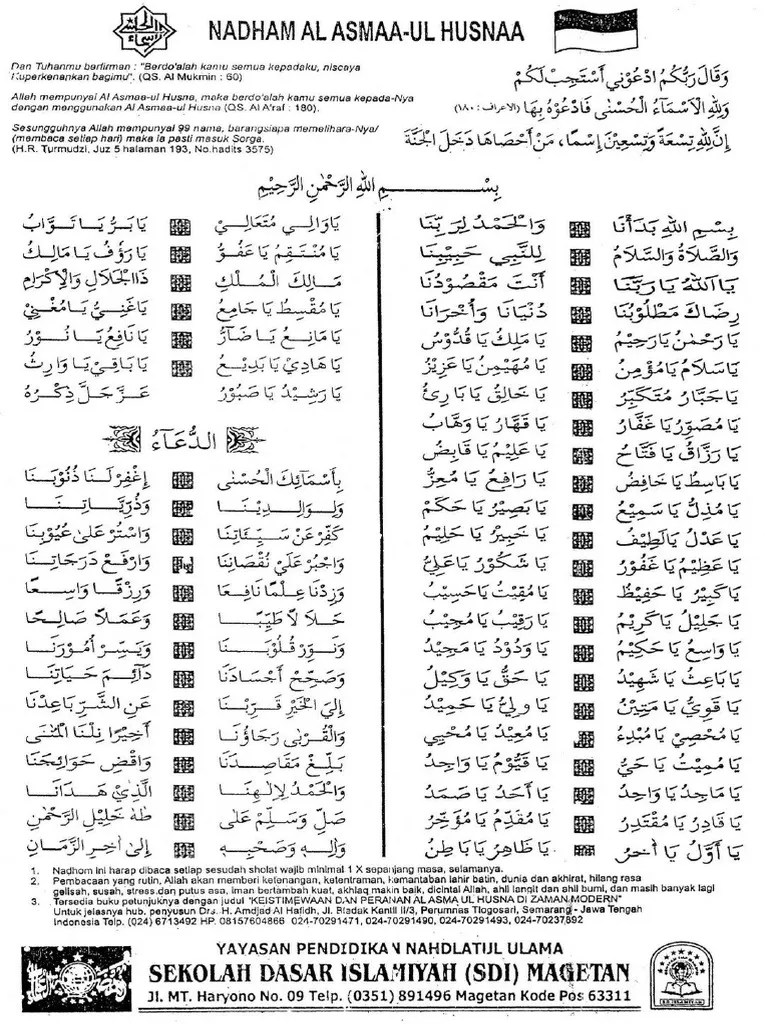 NADHAM AL ASMAA-UL HUSNAA
Dan Tuhanmu berfirman : "Berdo'alah kamu semua kepadaku, niscaya
Kuperkenankan bagimu". (QS. Al Mukmin : 60)
Allah mempunyai Al Asmaa-ul Husna, maka berdo'alah kamu semua kepada-Nya
dengan menggunakan Al Asmaa-ul Husna (QS. Al A'raf : 180).
Sesungguhnya Allah mempunyai 99 nama, barangsiapa memelihara-Nya/
(membaca setiap hari) maka ia pasti masuk Sorga.
(H.R. Turmudzi, Juz 5 halaman 193, No.hadits 3575)
وَقَالَ رَبُّكُمُ ادْعُوْنِي أَسْتَجِبْ لَكُمْ
وَلِلّٰهِ الْأَسْمَاءُ الْحُسْنٰى فَادْعُوْهُ بِهَا (الاعراف : ١٨٠)
إِنَّ لِلّٰهِ تِسْعَةً وَتِسْعِيْنَ إِسْمًا، مَنْ أَحْصَاهَا دَخَلَ الْجَنَّةَ
بِسْمِ اللّٰهِ الرَّحْمٰنِ الرَّحِيْمِ
بِسْمِ اللّٰهِ بَدَأْنَا وَالْحَمْدُ لِرَبِّنَا
وَالصَّلَاةُ وَالسَّلَامُ لِلنَّبِيِّ حَبِيْبِنَا
يَا اَللّٰهُ يَا رَبَّنَا أَنْتَ مَقْصُوْدُنَا
رِضَاكَ مَطْلُوْبُنَا دُنْيَانَا وَأُخْرَانَا
يَا رَحْمٰنُ يَا رَحِيْمُ يَا مَلِكُ يَا قُدُّوْسُ
يَا سَلَامُ يَا مُؤْمِنُ يَا مُهَيْمِنُ يَا عَزِيْزُ
يَا جَبَّارُ مُتَكَبِّرُ يَا خَالِقُ يَا بَارِئُ
يَا مُصَوِّرُ يَا غَفَّارُ يَا قَهَّارُ يَا وَهَّابُ
يَا رَزَّاقُ يَا فَتَّاحُ يَا عَلِيْمُ يَا قَابِضُ
يَا بَاسِطُ يَا خَافِضُ يَا رَافِعُ يَا مُعِزُّ
يَا مُذِلُّ يَا سَمِيْعُ يَا بَصِيْرُ يَا حَكَمُ
يَا عَدْلُ يَا لَطِيْفُ يَا خَبِيْرُ يَا حَلِيْمُ
يَا عَظِيْمُ يَا غَفُوْرُ يَا شَكُوْرُ يَا عَلِيُّ
يَا كَبِيْرُ يَا حَفِيْظُ يَا مُقِيْتُ يَا حَسِيْبُ
يَا جَلِيْلُ يَا كَرِيْمُ يَا رَقِيْبُ يَا مُجِيْبُ
يَا وَاسِعُ يَا حَكِيْمُ يَا وَدُوْدُ يَا مَجِيْدُ
يَا بَاعِثُ يَا شَهِيْدُ يَا حَقُّ يَا وَكِيْلُ
يَا قَوِيُّ يَا مَتِيْنُ يَا وَلِيُّ يَا حَمِيْدُ
يَا مُحْصِيْ يَا مُبْدِءُ يَا مُعِيْدُ يَا مُحْيِي
يَا مُمِيْتُ يَا حَيُّ يَا قَيُّوْمُ يَا وَاجِدُ
يَا مَاجِدُ يَا وَاحِدُ يَا أَحَدُ يَا صَمَدُ
يَا قَادِرُ يَا مُقْتَدِرُ يَا مُقَدِّمُ يَا مُؤَخِّرُ
يَا أَوَّلُ يَا آخِرُ يَا ظَاهِرُ يَا بَاطِنُ
يَا وَالِي مُتَعَالِيْ يَا بَرُّ يَا تَوَّابُ
يَا مُنْتَقِمُ يَا عَفُوُّ يَا رَؤُفُ يَا مَالِكُ
مَالِكَ الْمُلْكِ ذَا الْجَلَالِ وَالْإِكْرَامِ
يَا مُقْسِطُ يَا جَامِعُ يَا غَنِيُّ يَا مُغْنِيْ
يَا مَانِعُ يَا ضَآرُّ يَا نَافِعُ يَا نُوْرُ
يَا هَادِيْ يَا بَدِيْعُ يَا بَاقِيْ يَا وَارِثُ
يَا رَشِيْدُ يَا صَبُوْرُ عَزَّ جَلَّ ذِكْرُهُ
الدُّعَاءُ
بِأَسْمَائِكَ الْحُسْنٰى إِغْفِرْ لَنَا ذُنُوْبَنَا
وَلِوَالِدِيْنَا وَذُرِّيَّاتِنَا
كَفِّرْ عَنْ سَيِّئَاتِنَا وَاسْتُرْ عَلٰى عُيُوْبِنَا
وَاجْبُرْ عَلٰى نُقْصَانِنَا وَارْفَعْ دَرَجَاتِنَا
وَزِدْنَا عِلْمًا نَافِعًا وَرِزْقًا وَاسِعًا
حَلَالًا طَيِّبًا وَعَمَلًا صَالِحًا
وَنَوِّرْ قُلُوْبَنَا وَيَسِّرْ أُمُوْرَنَا
وَصَحِّحْ أَجْسَادَنَا دَائِمَ حَيَاتِنَا
إِلَى الْخَيْرِ قَرِّبْنَا عَنِ الشَّرِّ بَاعِدْنَا
وَالْقُرْبٰى رَجَاؤُنَا أَخِيْرًا نِلْنَا الْمُنٰى
بَلِّغْ مَقَاصِدَنَا وَاقْضِ حَوَائِجَنَا
وَالْحَمْدُ لِإِلٰهِنَا الَّذِيْ هَدَانَا
صَلِّ وَسَلِّمْ عَلٰى طٰهٰ خَلِيْلِ الرَّحْمٰنِ
وَآلِهِ وَصَحْبِهِ إِلٰى آخِرِ الزَّمَانِ
1. Nadhom ini harap dibaca setiap sesudah sholat wajib minimal 1 X sepanjang masa, selamanya.
2. Pembacaan yang rutin, Allah akan memberi ketenangan, ketentraman, kemantaban lahir batin, dunia dan akhirat, hilang rasa
gelisah, susah, stress dan putus asa, iman bertambah kuat, akhlaq makin baik, dicintai Allah, ahli langit dan ahli bumi, dan masih banyak lagi
3. Tersedia buku petunjuknya dengan judul "KEISTIMEWAAN DAN PERANAN AL ASMA UL HUSNA DI ZAMAN MODERN"
Untuk jelasnya hub. penyusun Drs. H. Amdjad Al Hafidh, Jl. Bladak Kanlil II/3, Perumnas Tlogosari, Semarang - Jawa Tengah
Indonesia Telp. (024) 6713492 HP. 08157604866 024-70291471, 024-70291490, 024-70291493, 024-70237892
YAYASAN PENDIDIKAN NAHDLATUL ULAMA
SEKOLAH DASAR ISLAMIYAH (SDI) MAGETAN
Jl. MT. Haryono No. 09 Telp. (0351) 891496 Magetan Kode Pos 63311